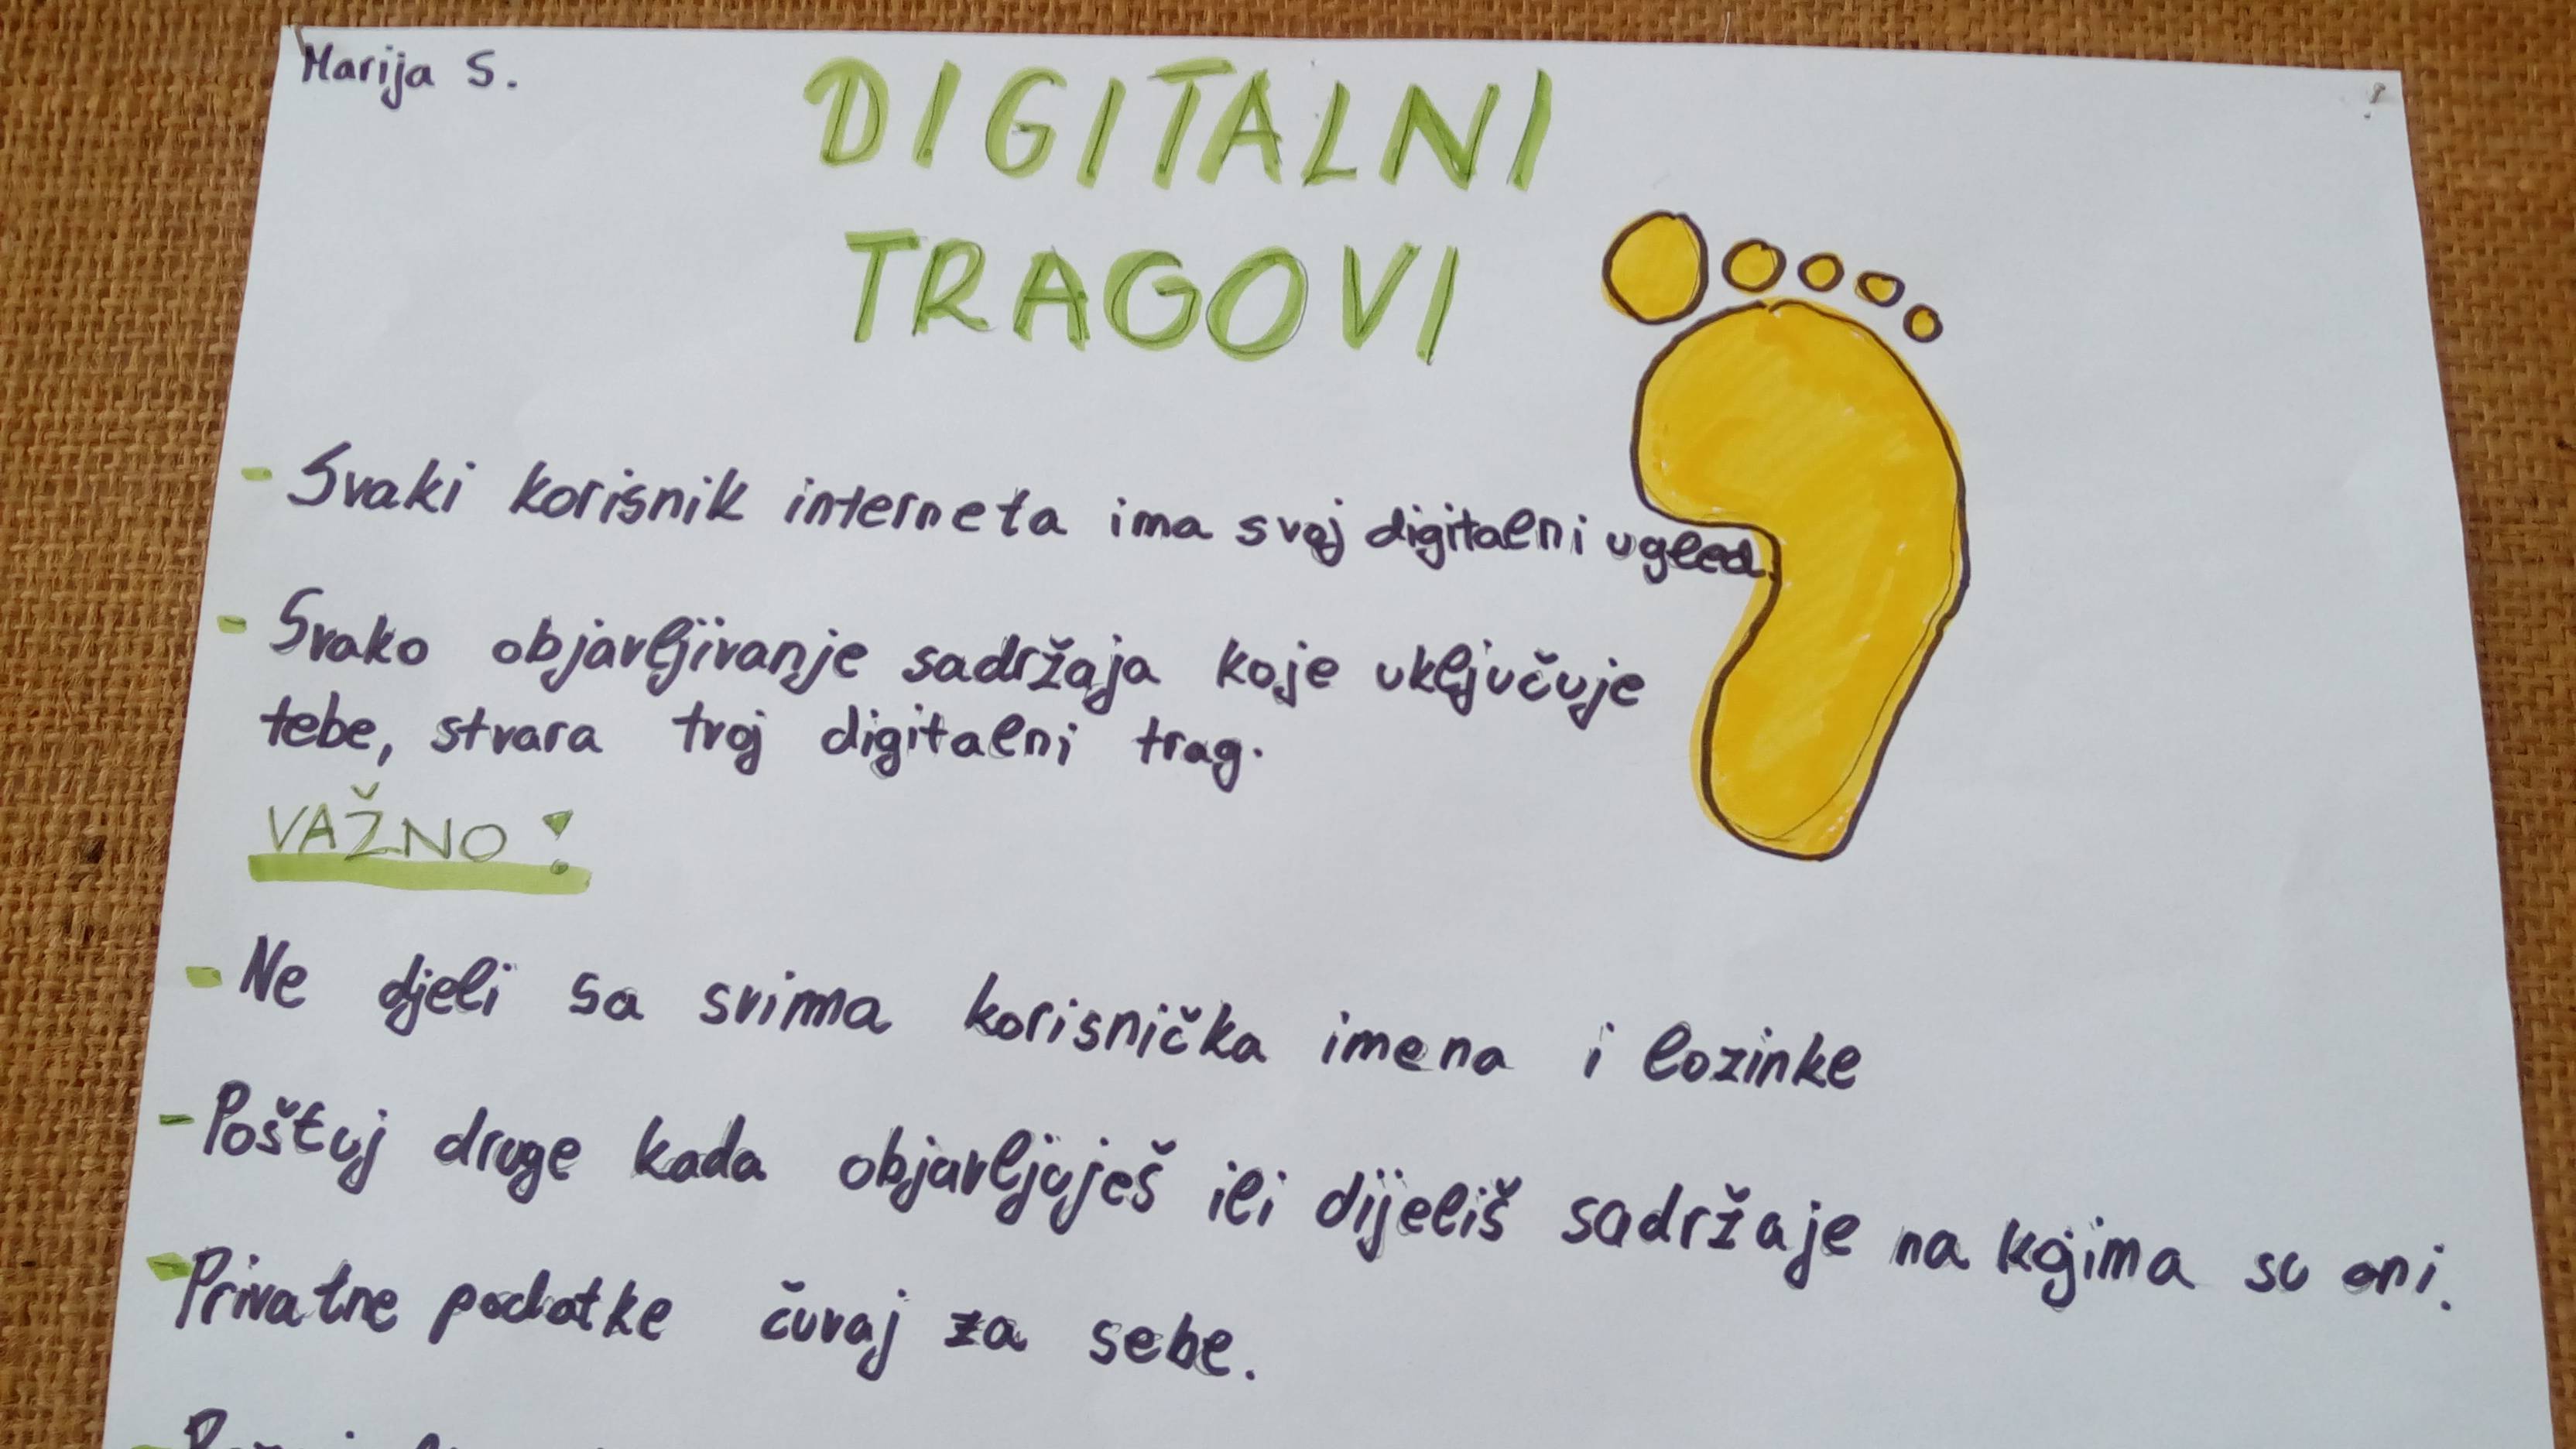 Marija S.
DIGITALNI
TRAGOVI
- Svaki korisnik interneta ima svoj digitalni ugled.
- Svako objavljivanje sadržaja koje uključuje
tebe, stvara tvoj digitalni trag.
VAŽNO!
- Ne djeli sa svima korisnička imena i lozinke
- Poštuj druge kada objavljuješ ili dijeliš sadržaje na kojima su oni.
- Privatne podatke čuvaj za sebe.